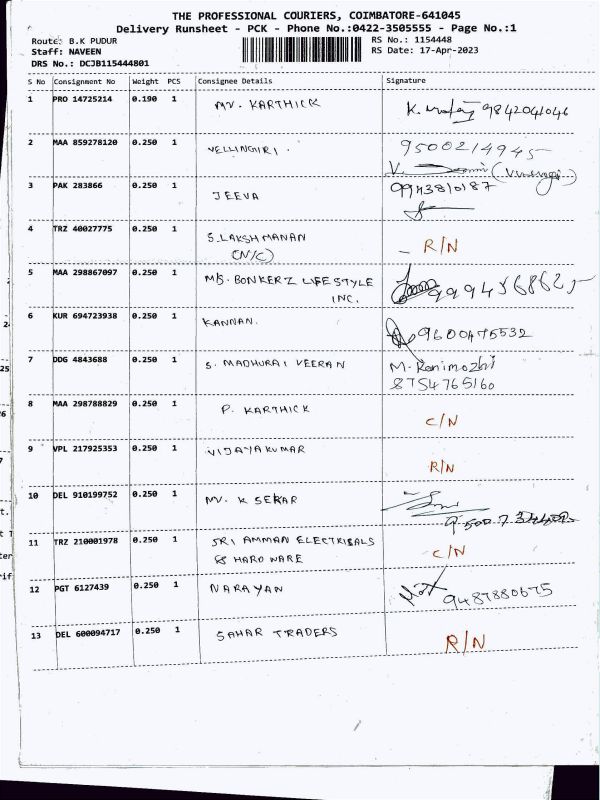 THE PROFESSIONAL COURIERS, COIMBATORE-641045
Delivery Runsheet - PCK - Phone No.:0422-3505555 - Page No.:1
Route: B.K PUDUR
RS No.: 1154448
Staff: NAVEEN
RS Date: 17-Apr-2023
DRS No.: DCJB115444801
S No Consignment No Weight PCS Consignee Details Signature
1 PRO 14725214 0.190 1 MV. KARTHICK K. 9842041046
2 MAA 859278120 0.250 1 VELLINGIRI. 9500214945
V.
3 PAK 283866 0.250 1 JEEVA 9943810187
4 TRZ 40027775 0.250 1 S. LAKSHMANAN - R/N
(N/C)
5 MAA 298867097 0.250 1 M/S. BONKERZ LIFESTYLE
INC.
6 KUR 694723938 0.250 1 KANNAN. 9600475532
7 DDG 4843688 0.250 1 S. MADHURAI VEERAN M. Ranimozhi
8754765160
8 MAA 298788829 0.250 1 P. KARTHICK C/N
9 VPL 217925353 0.250 1 VIJAYAKUMAR R/N
10 DEL 910199752 0.250 1 MV. K SEKAR
11 TRZ 210001978 0.250 1 SRI AMMAN ELECTRICALS C/N
& HARDWARE
12 PGT 6127439 0.250 1 NARAYAN 9487880675
13 DEL 600094717 0.250 1 SAHAR TRADERS R/N